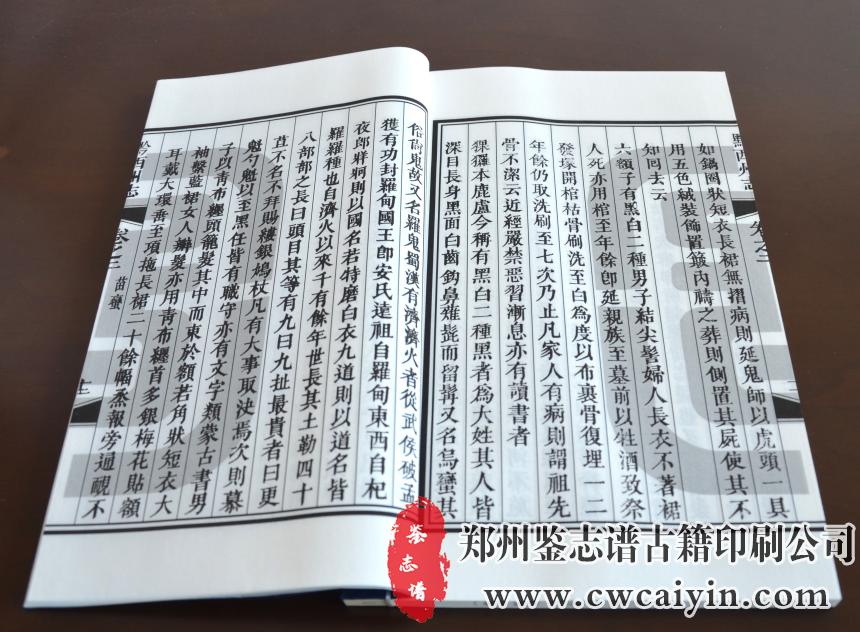 黔西州志
卷之三
如鍋圈狀短衣長裙無摺病則延鬼師以虎頭一具
用五色絨裝飾置簸內禱之葬則側置其屍使其不
知回去云
六額子有黑白二種男子結尖髻婦人長衣不著裙
人死亦用棺至年餘卽延親族至墓前以牲酒致祭
發塚開棺枯骨刷洗至白為度以布裹骨復埋一二
年餘仍取洗刷至七次乃止凡家人有病則謂祖先
骨不潔云近經嚴禁惡習漸息亦有讀書者
猓玀本鹿盧今稱有黑白二種黑者為大姓其人皆
深目長身黑面白齒鈎鼻薙髭而留髯又名烏蠻其
俗尙鬼故又名羅鬼蜀漢有濟濟火者從武侯破孟
獲有功封羅甸國王卽安氏遠祖自羅甸東西自杞
夜郎牂牁則以國名若特磨白衣九道則以道名皆
羅羅種也自濟火以來千有餘年世長其土勒四十
八部部之長曰頭目其等有九曰九扯最貴者曰更
苴不名不拜賜鏤銀鳩杖凡有大事取決焉次則慕
魁勺魁以至黑任皆有職守亦有文字類蒙古書男
子以青布纒頭籠髮其中而束於額若角狀短衣大
袖繫藍裙女人辮髮亦用青布纒首多銀梅花貼額
耳戴大環垂至項拖長裙二十餘幅烝報旁通靦不
黔西州志
卷之三
苗蠻
鉴志谱
郑州鉴志谱古籍印刷公司
www.cwcaiyin.com